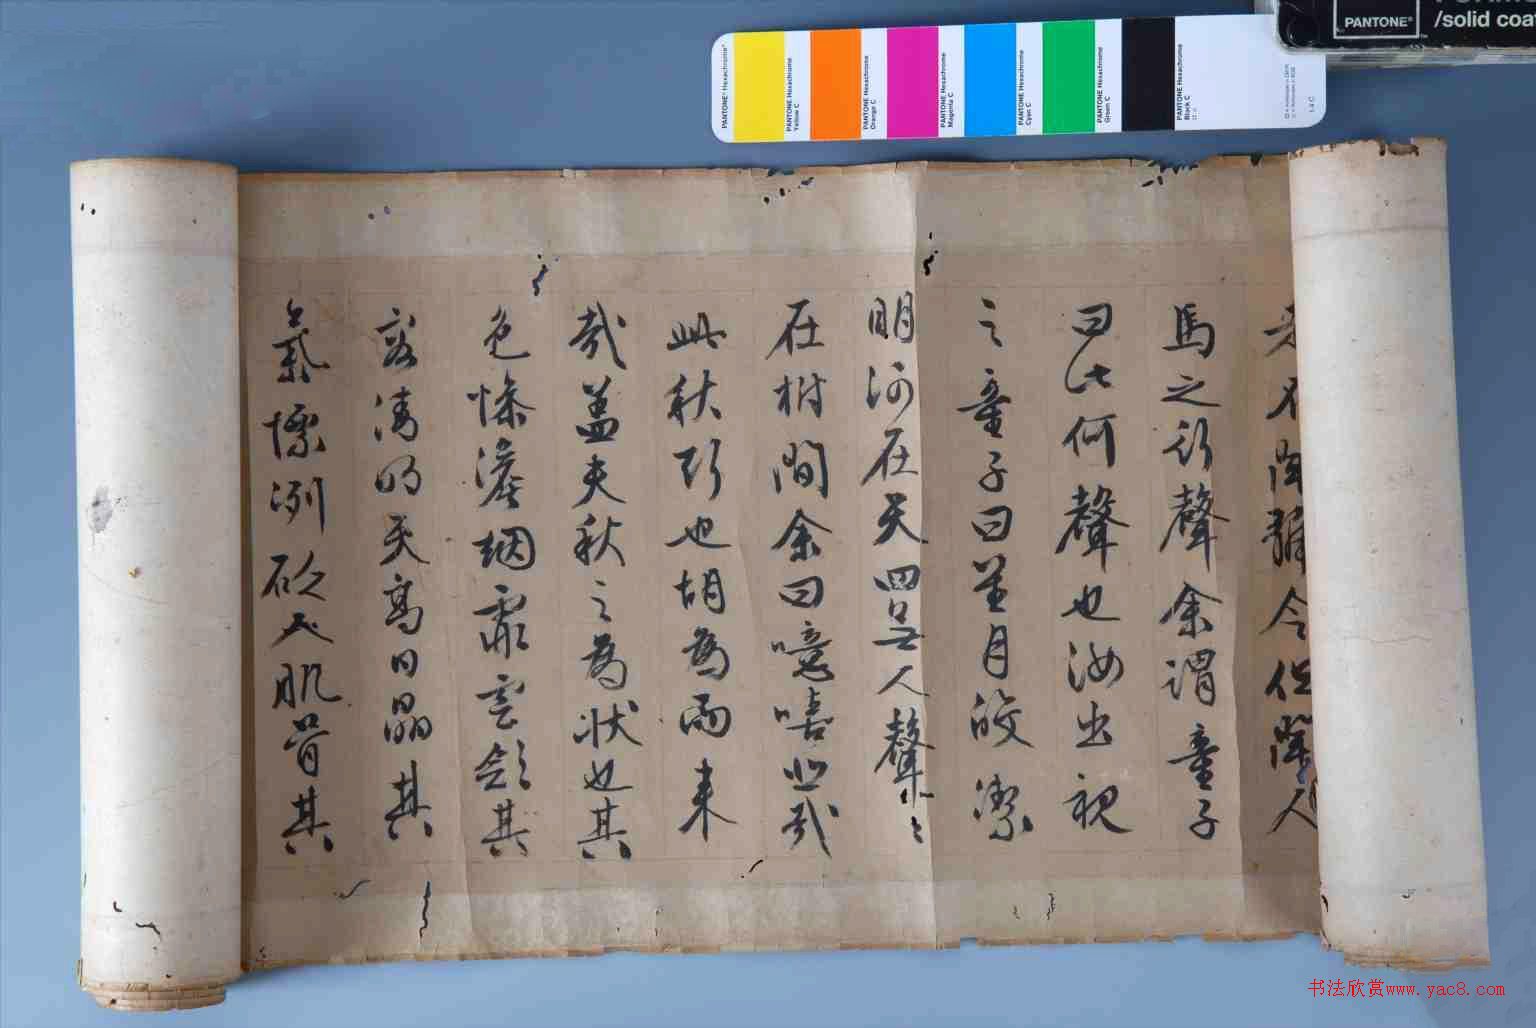 PANTONE®
/solid coa
PANTONE® Hexachrome®
PANTONE Hexachrome Yellow C
PANTONE Hexachrome Orange C
PANTONE Hexachrome Magenta C
PANTONE Hexachrome Cyan C
PANTONE Hexachrome Green C
PANTONE Hexachrome Black C
1.4 C
走不聞號令但聞人
馬之行聲余謂童子
曰此何聲也汝出視
之童子曰星月皎潔
明河在天四無人聲〻
在樹間余曰噫嘻悲哉
此秋聲也胡為而來
哉蓋夫秋之為狀也其
色慘澹烟霏雲斂其
容清明天高日晶其
氣慄冽砭人肌骨其
书法欣赏www.yac8.com